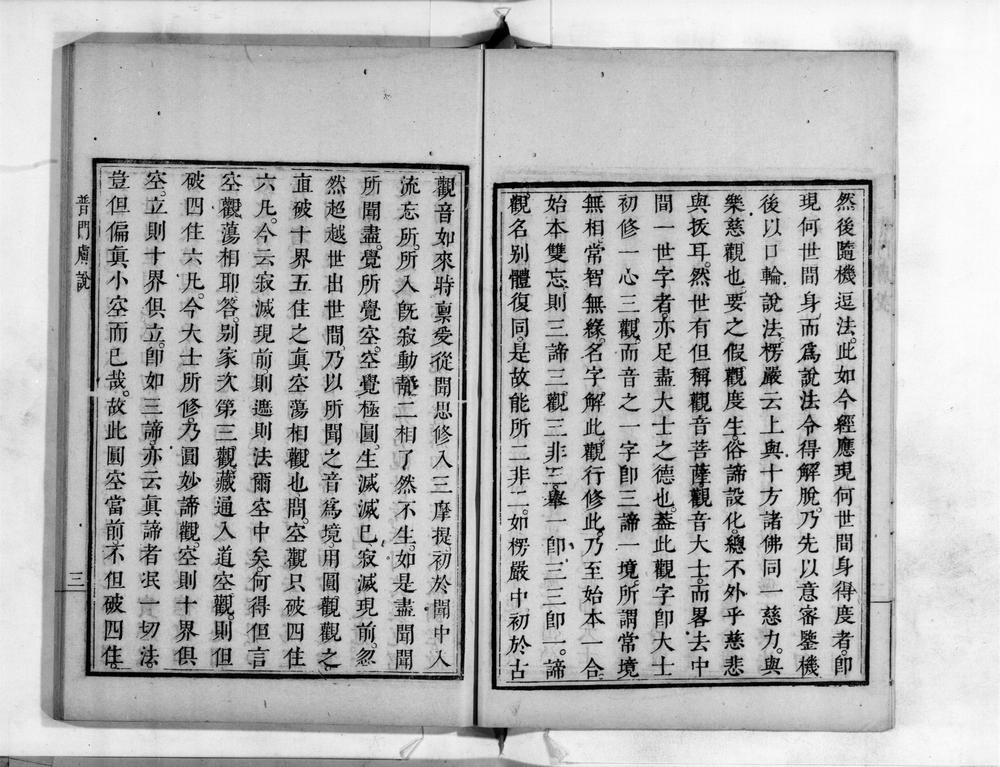 然後隨機逗法。此如今經應現何世間身得度者。卽
現何世間身而爲說法令得解脫。乃先以意審鑒機
後以口輪說法。楞嚴云上與十方諸佛同一慈力。與
樂慈觀也。要之假觀度生。俗諦設化。總不外乎慈悲
與拔耳。然世有但稱觀音菩薩觀音大士。而畧去中
間一世字者。亦足盡大士之德也。葢此觀字卽大士
初修一心三觀。而音之一字卽三諦一境。所謂常境
無相常智無緣。名字解此。觀行修此。乃至始本一合
始本雙忘則三諦三觀三非三。舉一卽三三卽一。諦
觀名別體復同。是故能所二非二。如楞嚴中初於古
觀音如來時稟受從聞思修入三摩提。初於聞中入
流忘所。所入旣寂動靜二相了然不生。如是盡聞聞
所聞盡。覺所覺空。空覺極圓。生滅滅已寂滅現前。忽
然超越世出世間。乃以所聞之音爲境。用圓觀觀之。
直破十界五住之眞空蕩相觀也。問。空觀只破四住
六凡。今云寂滅現前則遮則法爾空中矣。何得但言
空觀蕩相耶。答。別家次第三觀藏通入道空觀。則但
破四住六凡。今大士所修。乃圓妙諦觀。空則十界俱
空。立則十界俱立。卽如三諦。亦云眞諦者泯一切法。
豈但偏眞小空而已哉。故此圓空當前。不但破四住。
普門膚說
三